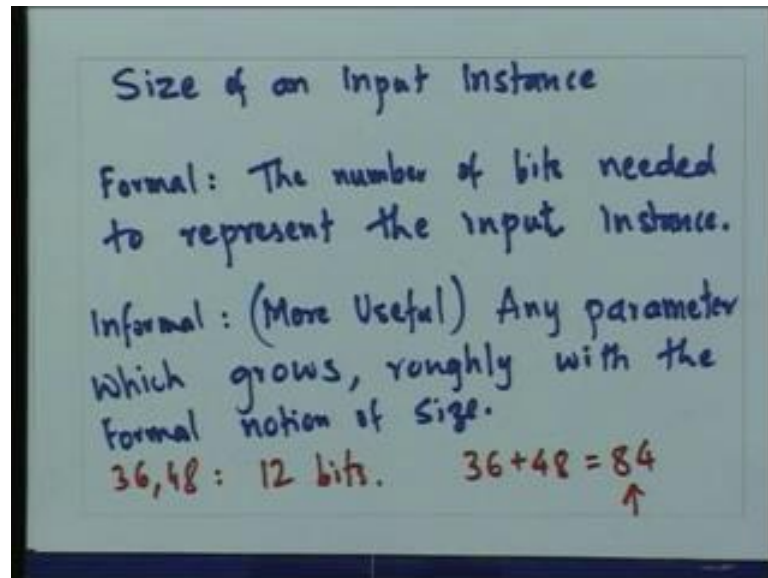 Size of an Input Instance
Formal: The number of bits needed
to represent the input instance.
Informal: (More Useful) Any parameter
which grows, roughly with the
formal notion of size.
36,48: 12 bits. 36+48=84
↑